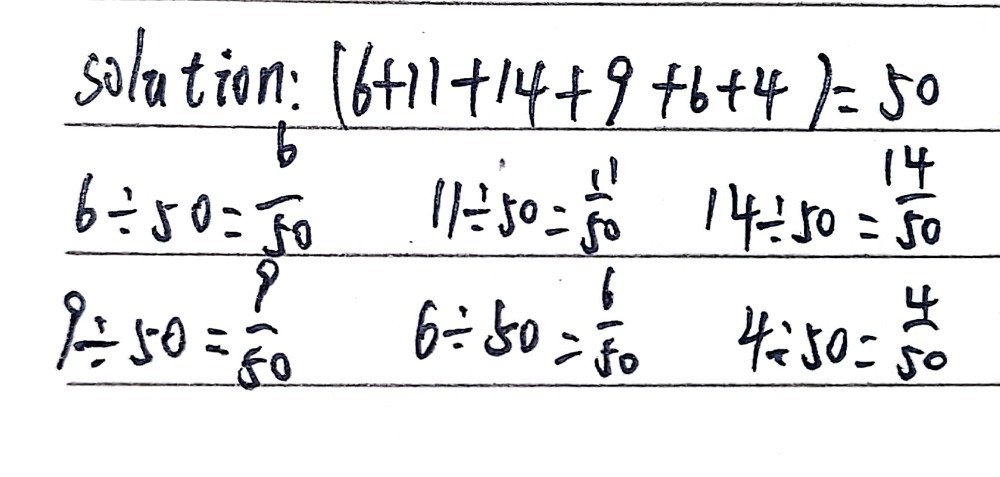 solution: (6+11+14+9+6+4)=50
6÷50=6/50 11÷50=11/50 14÷50=14/50
9÷50=9/50 6÷50=6/50 4÷50=4/50